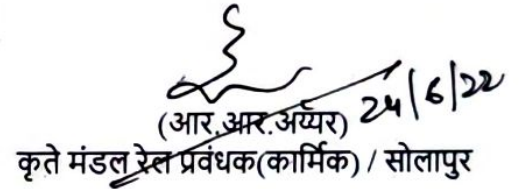 (आर.आर.अय्यर) 24/6/22
कृते मंडल रेल प्रवंधक(कार्मिक) / सोलापुर